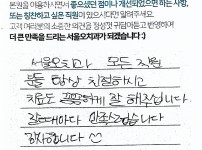 본원을 이용하시면서 좋으셨던 점이나 개선되었으면 하는 사항,
또는 칭찬하고 싶은 직원이 있으시다면 말해주세요.
고객 여러분의 소중한 의견을 정성껏 귀담아듣고 반영하여
더 큰 만족을 드리는 서울오치과가 되겠습니다 :)
서울오치과 모든 직원
분들 항상 친절하시고
치료도 꼼꼼하게 잘 해주십니다
만족스럽습니다
감사합니다 ☺